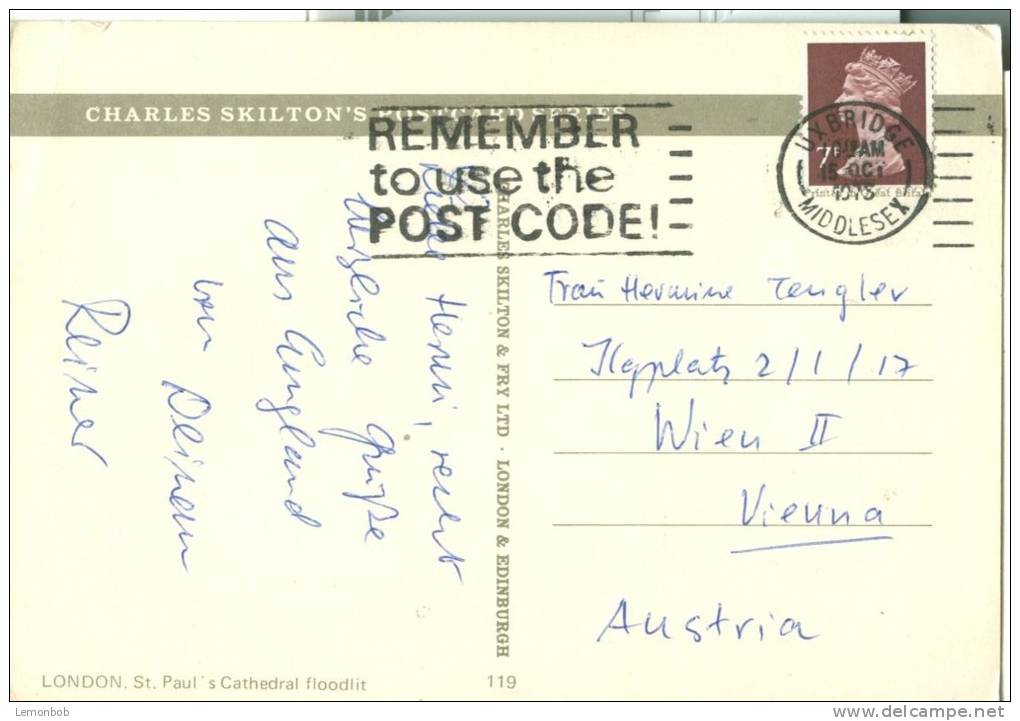 CHARLES SKILTON'S POSTCARD SERIES
REMEMBER
to use the
POST CODE!
UXBRIDGE
AM
15 OCT
1975
MIDDLESEX
7P
Liebe Henni, recht
herzliche Grüße
aus England
von Deinem
Reiner
CHARLES SKILTON & FRY LTD · LONDON & EDINBURGH
Frau Hermine Tengler
Ilgplatz 2/1/17
Wien II
Vienna
Austria
LONDON. St. Paul's Cathedral floodlit
119
Lemonbob
delcampe.net